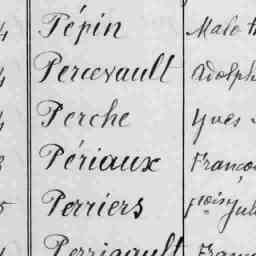 4 Pépin Malo
4 Percevault Adolph
4 Perche Yves
3 Périaux Franço
5 Perriers Jul
Perrigault Fran